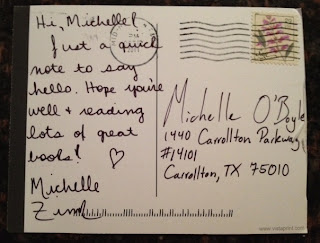 Hi, Michelle!
Just a quick
note to say
hello. Hope you're
well & reading
lots of great
books! ♡
Michelle
Michelle O'Boyle
1440 Carrollton Parkway
#14101
Carrollton, TX 75010
www.vistaprint.com